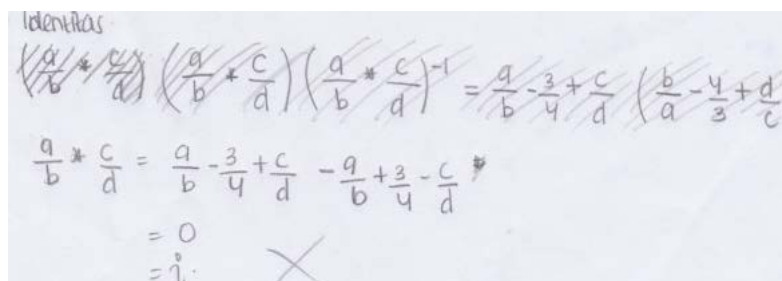 Identitas
(a/b * c/d) (a/b * c/d) (a/b * c/d)^-1 = a/b - 3/4 + c/d (b/a - 4/3 + d/c
a/b * c/d = a/b - 3/4 + c/d - a/b + 3/4 - c/d
= 0
= i.